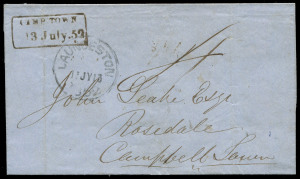 CAMP. TOWN
13 July. 52
LAUNCESTON
JY 13
4
John Leake Esqr
Rosedale
Campbell Town